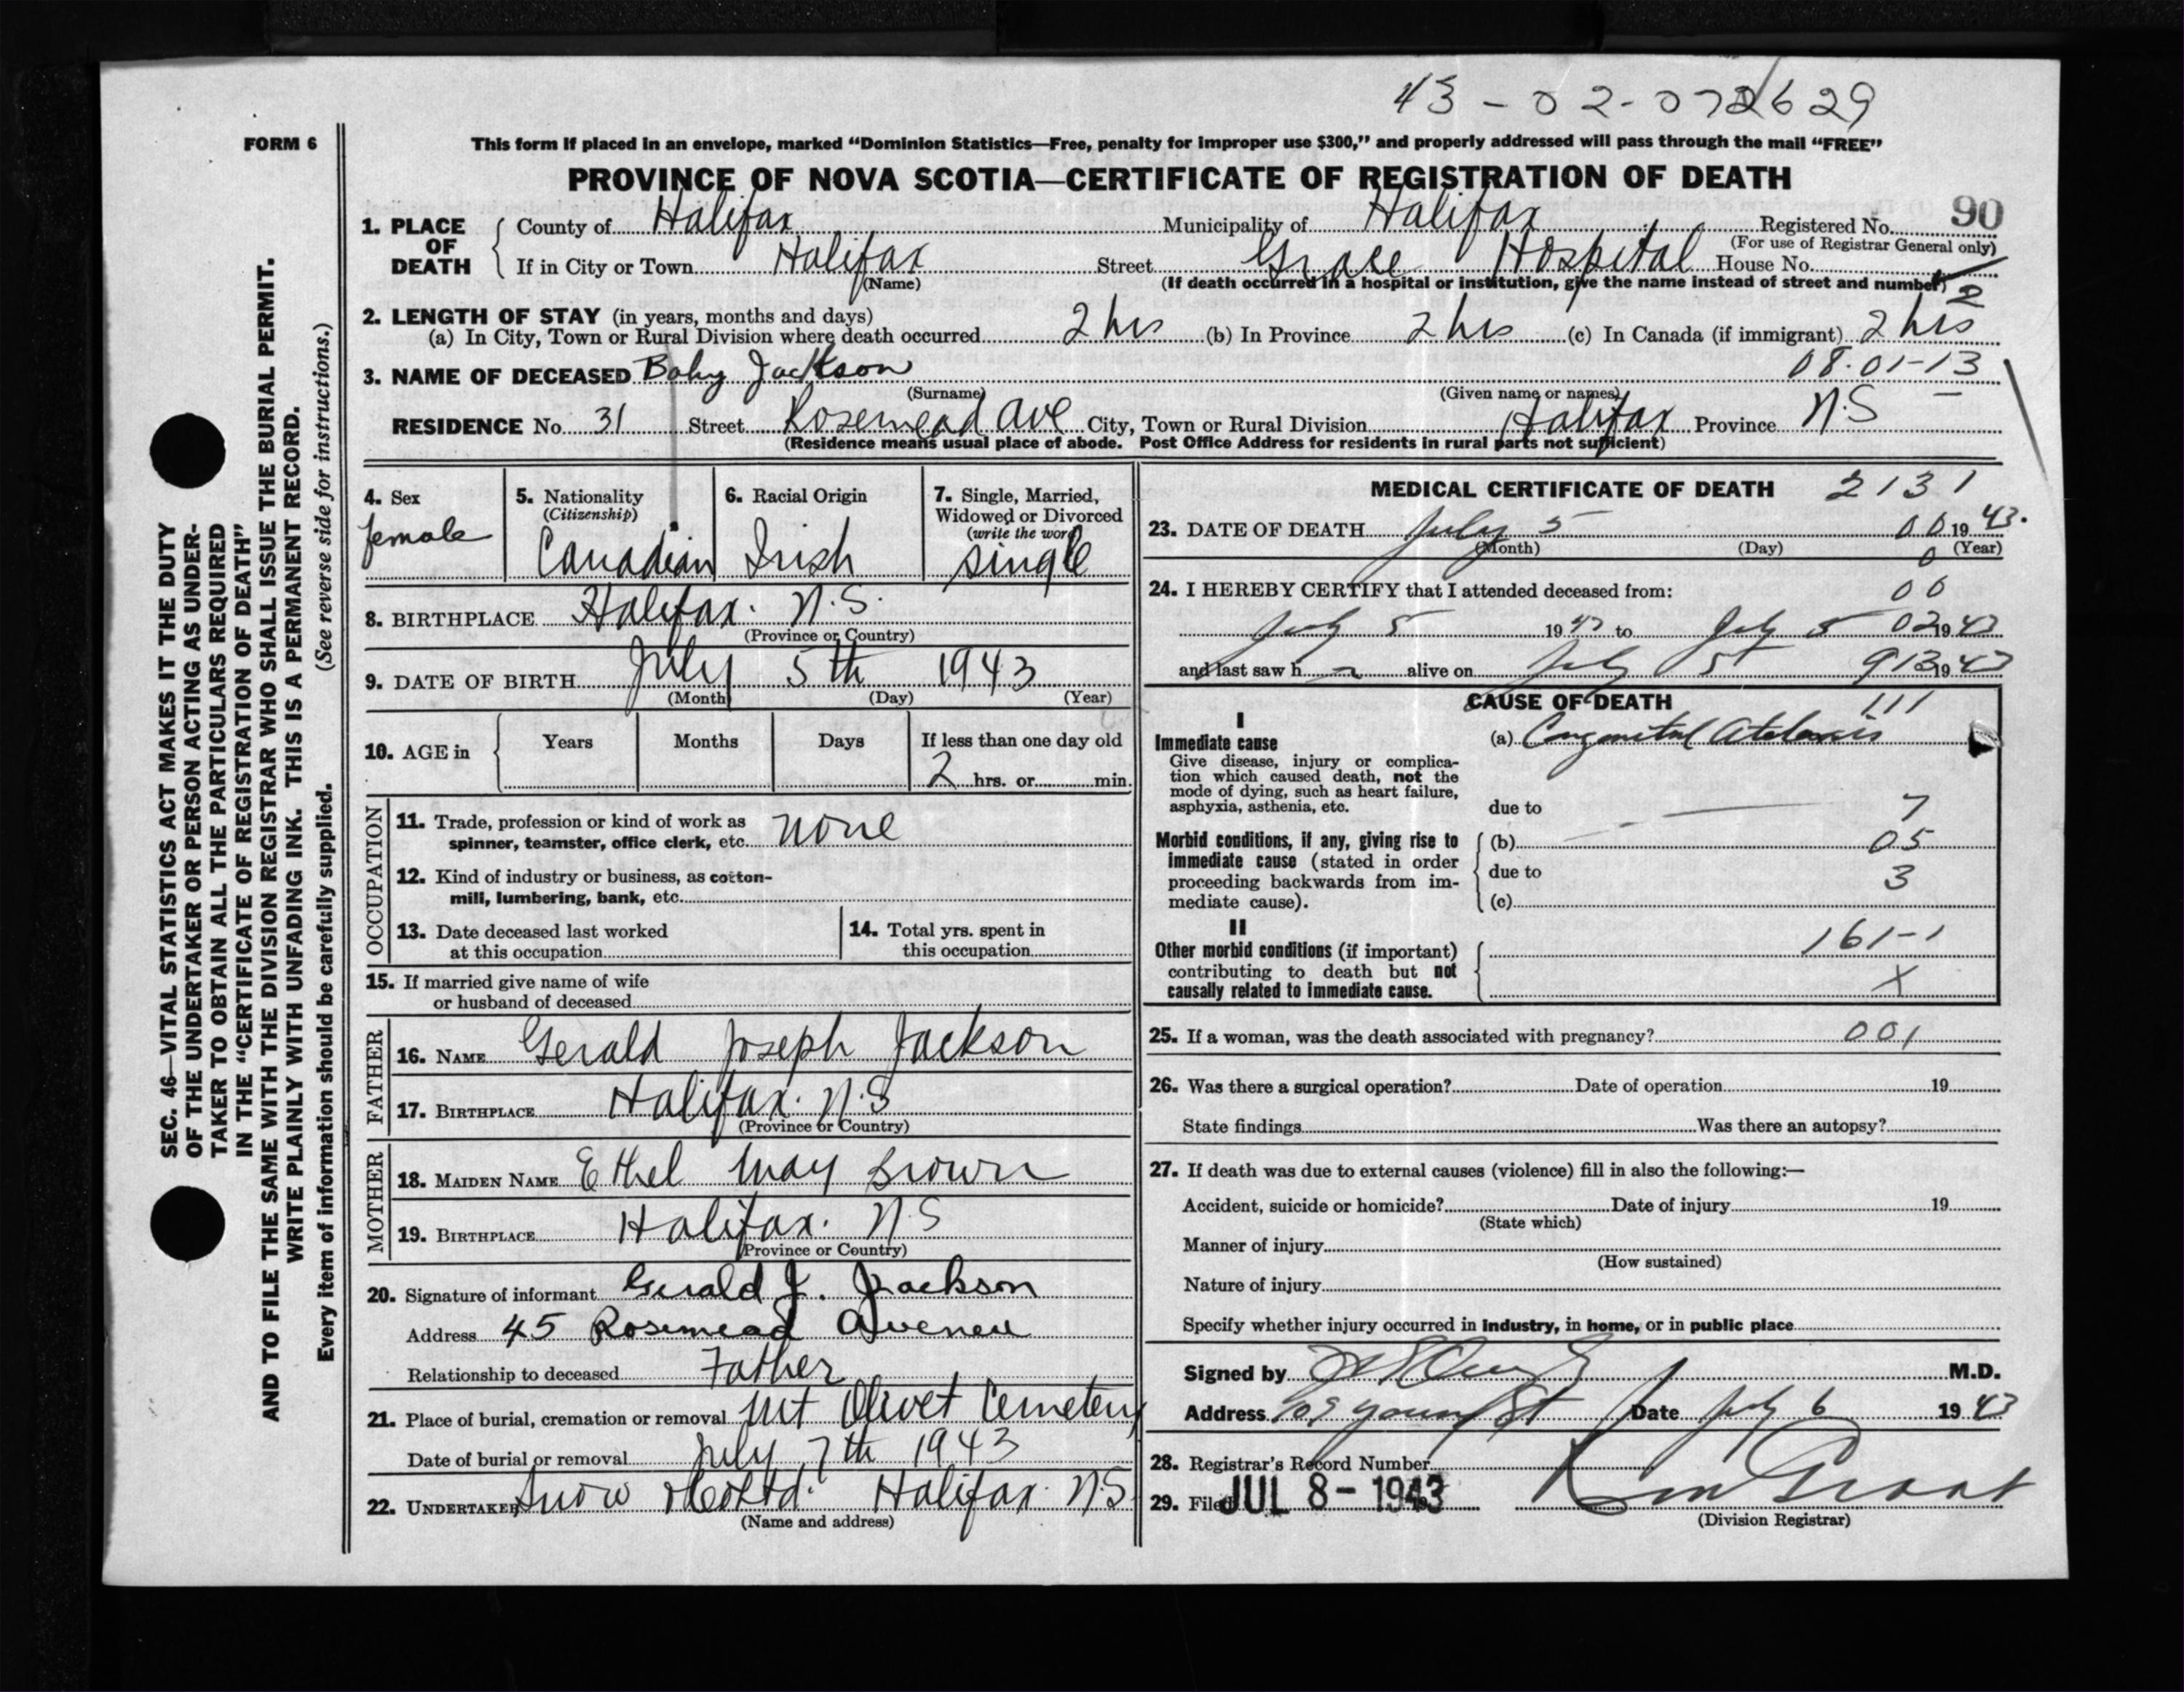 43-02-072629
FORM 6
This form if placed in an envelope, marked "Dominion Statistics—Free, penalty for improper use $300," and properly addressed will pass through the mail "FREE"
PROVINCE OF NOVA SCOTIA—CERTIFICATE OF REGISTRATION OF DEATH
1. PLACE OF DEATH { County of Halifax Municipality of Halifax Registered No. 90
(For use of Registrar General only)
If in City or Town Halifax Street Grace Hospital House No.
(Name) (If death occurred in a hospital or institution, give the name instead of street and number) 2
2. LENGTH OF STAY (in years, months and days)
(a) In City, Town or Rural Division where death occurred 2 hrs (b) In Province 2 hrs (c) In Canada (if immigrant) 2 hrs
3. NAME OF DECEASED Baby Jackson 08.01-13
(Surname) (Given name or names)
RESIDENCE No. 31 Street Rosemead Ave City, Town or Rural Division Halifax Province N.S
(Residence means usual place of abode. Post Office Address for residents in rural parts not sufficient)
4. Sex female
5. Nationality (Citizenship) Canadian
6. Racial Origin Irish
7. Single, Married, Widowed or Divorced (write the word) single
8. BIRTHPLACE Halifax. N.S.
(Province or Country)
9. DATE OF BIRTH July 5th 1943
(Month) (Day) (Year)
10. AGE in { Years Months Days If less than one day old
2 hrs. or min.
OCCUPATION
11. Trade, profession or kind of work as
spinner, teamster, office clerk, etc. none
12. Kind of industry or business, as cotton-
mill, lumbering, bank, etc.
13. Date deceased last worked
at this occupation
14. Total yrs. spent in
this occupation
15. If married give name of wife
or husband of deceased
FATHER
16. NAME Gerald Joseph Jackson
17. BIRTHPLACE Halifax. N.S
(Province or Country)
MOTHER
18. MAIDEN NAME Ethel May Brown
19. BIRTHPLACE Halifax. N.S
(Province or Country)
20. Signature of informant Gerald J. Jackson
Address 45 Rosemead Aveneu
Relationship to deceased Father
21. Place of burial, cremation or removal Mt Olivet Cemetery
Date of burial or removal July 7th 1943
22. UNDERTAKER Snow & Co Ltd. Halifax. N.S.
(Name and address)
MEDICAL CERTIFICATE OF DEATH 2131
23. DATE OF DEATH July 5 00 1943.
(Month) (Day) 0 (Year)
24. I HEREBY CERTIFY that I attended deceased from: 00
July 5 1943 to July 5 02 1943
and last saw h alive on July 5 913 1943
CAUSE OF DEATH 111
I
Immediate cause
Give disease, injury or complica-
tion which caused death, not the
mode of dying, such as heart failure,
asphyxia, asthenia, etc.
(a) Congenital
due to 7
Morbid conditions, if any, giving rise to
immediate cause (stated in order
proceeding backwards from im-
mediate cause).
(b) 05
due to 3
(c)
II
Other morbid conditions (if important)
contributing to death but not
causally related to immediate cause.
161-1
X
25. If a woman, was the death associated with pregnancy? 001
26. Was there a surgical operation? Date of operation 19
State findings Was there an autopsy?
27. If death was due to external causes (violence) fill in also the following:—
Accident, suicide or homicide? Date of injury 19
(State which)
Manner of injury
(How sustained)
Nature of injury
Specify whether injury occurred in industry, in home, or in public place
Signed by M.D.
Address Young St Date July 6 1943
28. Registrar's Record Number
29. Filed JUL 8 - 1943
(Division Registrar)
SEC. 46—VITAL STATISTICS ACT MAKES IT THE DUTY
OF THE UNDERTAKER OR PERSON ACTING AS UNDER-
TAKER TO OBTAIN ALL THE PARTICULARS REQUIRED
IN THE "CERTIFICATE OF REGISTRATION OF DEATH"
AND TO FILE THE SAME WITH THE DIVISION REGISTRAR WHO SHALL ISSUE THE BURIAL PERMIT.
WRITE PLAINLY WITH UNFADING INK. THIS IS A PERMANENT RECORD.
Every item of information should be carefully supplied. (See reverse side for instructions.)